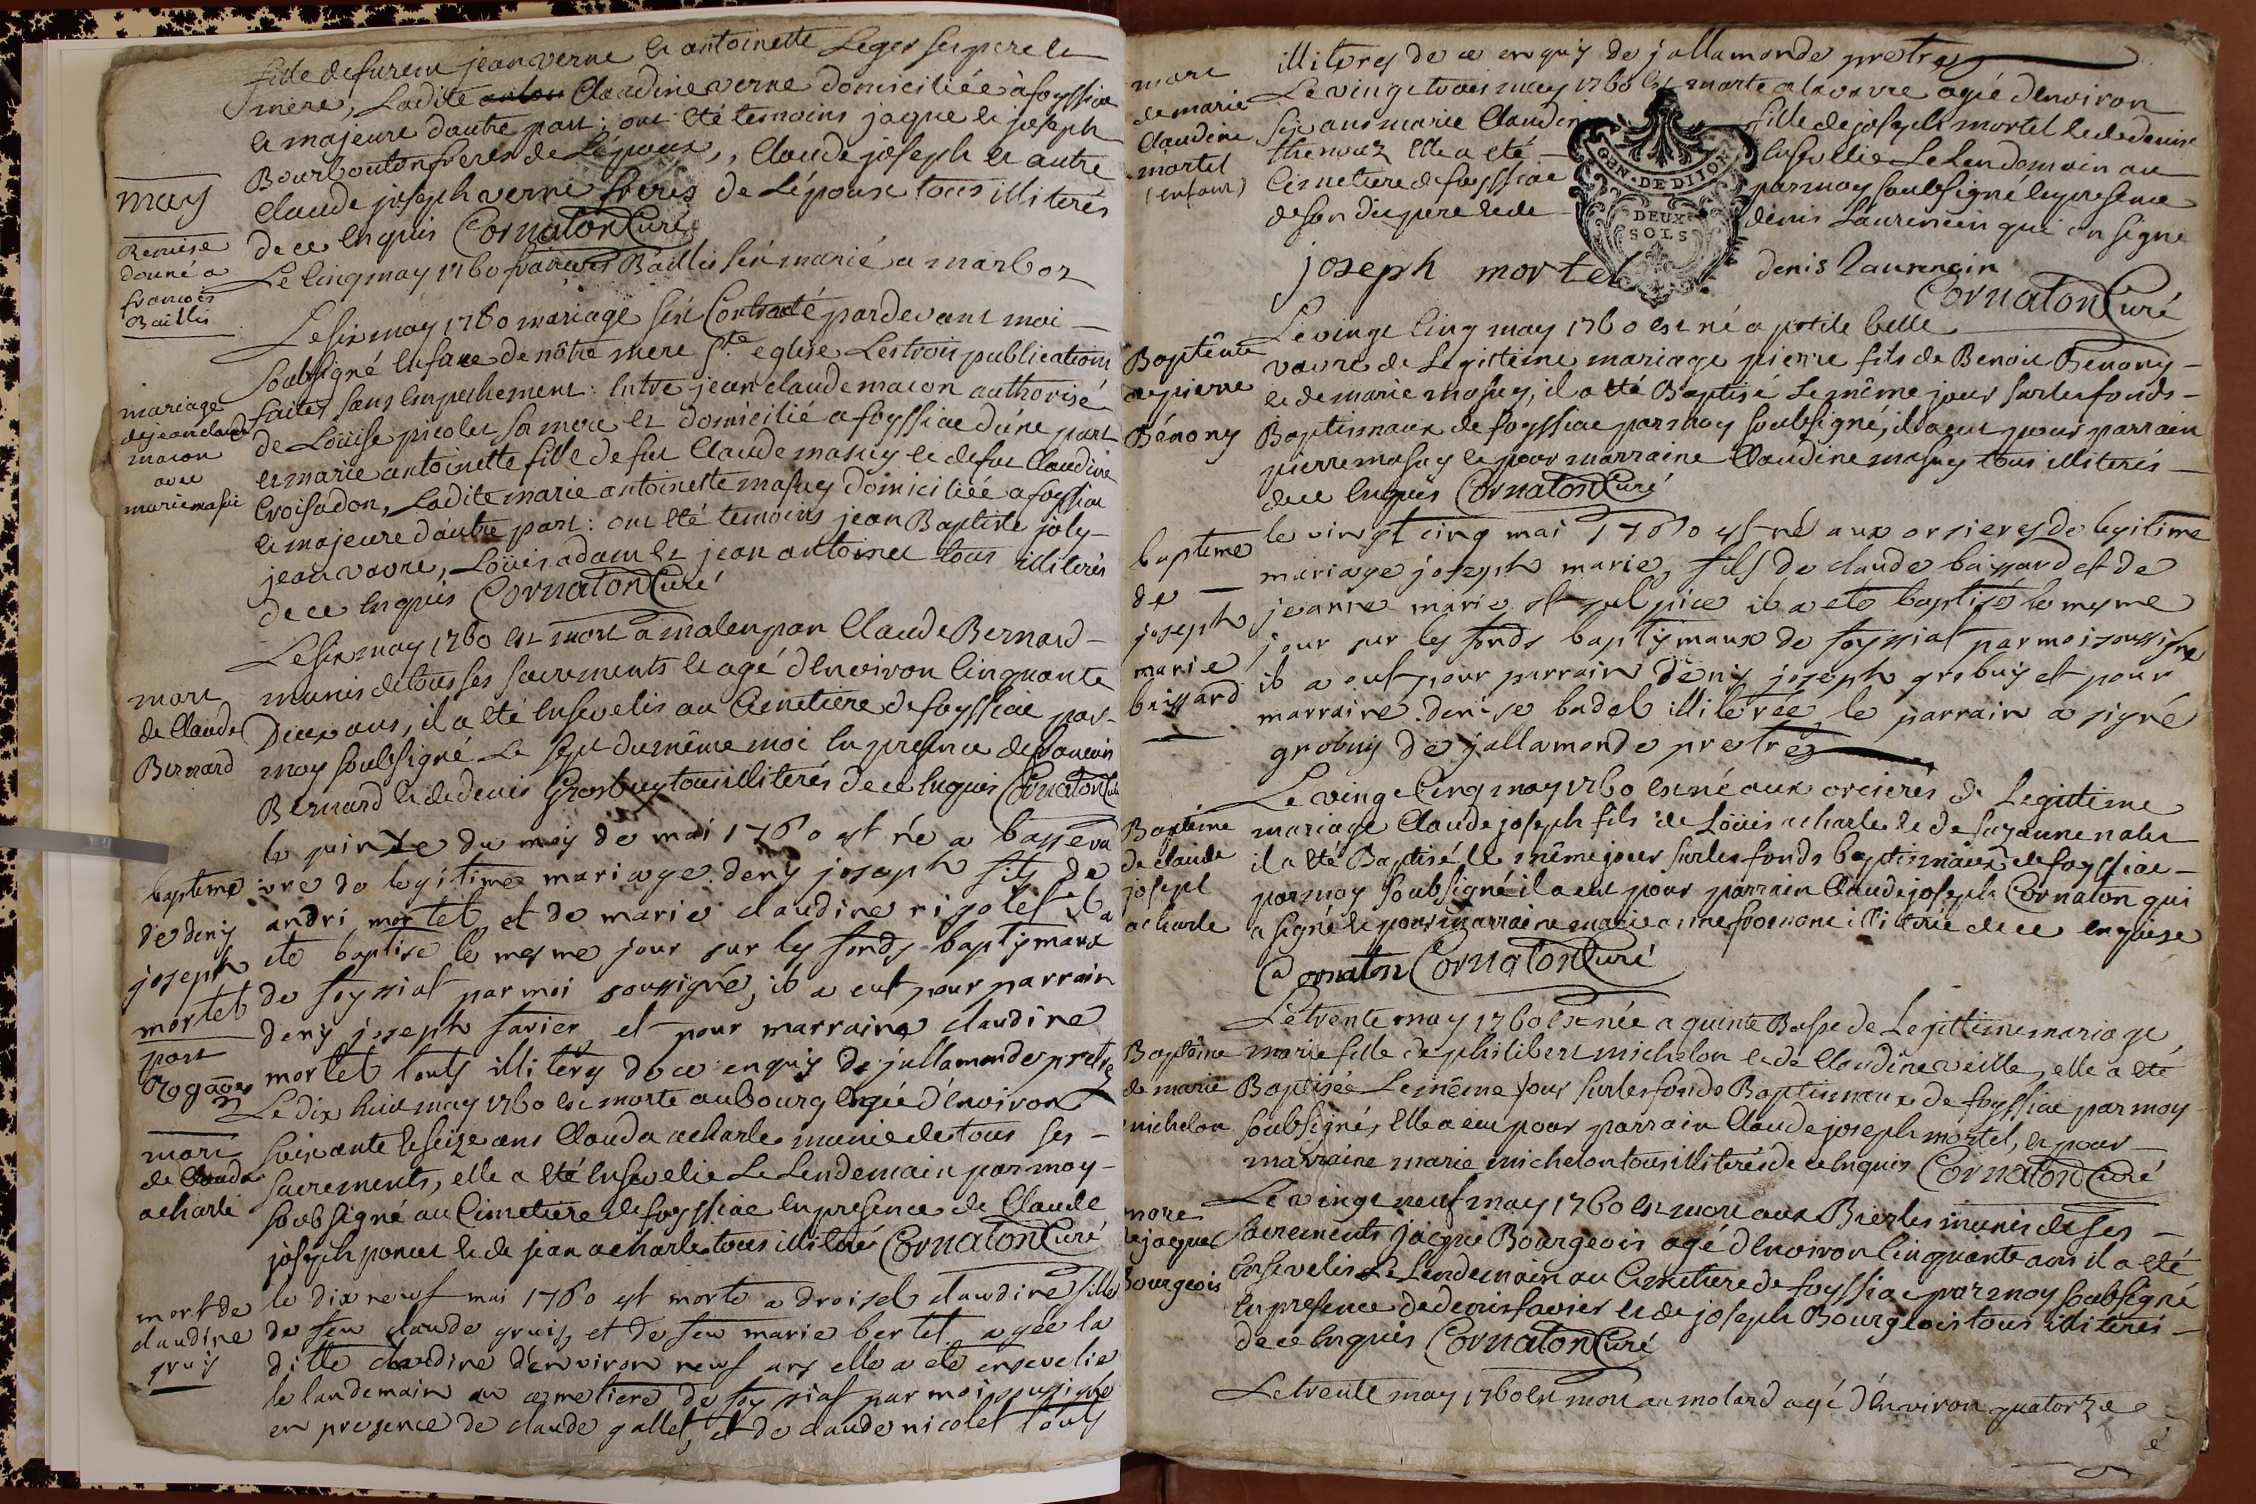 fille de furent jean verne et antoinette Leger ses pere et
mere, Ladite Claudine verne domiciliée à foyssiac
et majeure d'autre part : ont été temoins jaque et joseph
Bourbouton freres de L'epoux, Claude joseph et autre
Claude joseph verne freres de L'épouse tous illiterés
de ce Enquis Cornaton Curé
may
Remise
donné a
francois
Baillis
Le cinq may 1760 francois Baillis s'est marié a marboz
Le six may 1760 mariage s'est Contracté pardevant moi
soubsigné En face de nôtre mere Ste eglise Les trois publications
mariage
de jean claude
macon
avec
marie masui
faites sans Empechement : Entre jean claude macon authorisé
de Loüise picolet sa mere et domicilié a foyssiac d'une part
et marie antoinette fille de fut Claude masuy et de fut Claudine
Croisadon, Ladite marie antoinette masuy domiciliée a foyssiac
et majeure d'autre part : ont été temoins jean Baptiste joly
jean vavre, Loüis adam et jean antoinet tous illiterés
de ce Enquis Cornaton Curé
mort
de Claude
Bernard
Le six may 1760 est mort a malenpan Claude Bernard
munis de tous ses sacrements et agé d'Environ Cinquante
Deux ans, il a été Ensevelis au Cimetiere de foyssiac par
moy soubsigné Le sept du même moi En presence de francois
Bernard et de denis Grosbuy tous illiterés de ce Enquis Cornaton Cu
bapteme
de deny
joseph
mortel
le quinze du moy de mai 1760 est né a basseva
vre de legitime mariage deny joseph fils de
andri mortel et de marie claudine rigolet il a
ete baptise le mesme jour sur les fonds baptismaux
de foyssiat par moi soussigné, il a eut pour parrain
deny joseph favier et pour marraine claudine
mortel touts illiterés de ce enquis de jallamonde pretre
post
Rogaões
mort
de Clauda
acharle
Le dix huit may 1760 est morte au Bourg Agée d'Environ
soixante et seize ans Clauda acharle munie de tous ses
sacrements, elle a été Ensevelie Le Lendemain par moy
soubsigné au Cimetiere de foyssiac En presence de Claude
joseph poncet et de jean acharle tous illiterés Cornaton Curé
mort de
claudine
gruis
le dix neuf mai 1760 est morte a droisel claudine fille
de feu claude gruis, et de feu marie bertet agée la
ditte claudine d'environ neuf ans elle a ete ensevelie
le landemain au cemetiere de foyssiat par moi soussigné
en presence de claude gallet, et de claude nicolet touts
illiterés de ce enquis de jallamonde pretre
mort
de marie
Claudine
mortel
(enfant)
Le vingt trois may 1760 est morte a la vavre agée d'Environ
six ans marie Claudine fille de joseph mortel et de denise
thenoz Elle a été Ensevelie Le Lendemain au
Cimetiere de foyssiac par moy soubsigné En presence
de son dit pere et de denis Laurencin qui ont signé
GEN. DE DIJON
DEUX
SOLS
joseph mortel denis Laurencin
Cornaton Curé
Baptême
de pierre
Bénony
Le vingt Cinq may 1760 est né a petite belle
vavre de Legittime mariage pierre fils de Benoit Benony
et de marie masuy, il a été Baptisé Le même jour sur les fonds
Baptismaux de foyssiac par moy soubsigné, il a eut pour parrain
pierre masuy et pour marraine Claudine masuy tous illiterés
de ce Enquis Cornaton Curé
bapteme
de
joseph
marie
baissard
le vingt cinq mai 1760 est né aux orsieres de legitime
mariage joseph marie, fils de claude baissard et de
jeanne marie st sulpice il a ete baptisé le mesme
jour sur les fonds baptismaux de foyssiat par moi soussigné
il a eut pour parrain deny joseph grobuis et pour
marraine denise badel illiterée le parrain a signé
grobuis de jallamonde pretre
Baptême
de claude
joseph
acharle
Le vingt Cinq may 1760 est né aux orcieres de Legittime
mariage Claude joseph fils de Loüis acharle et de suzanne nalet
il a été Baptisé Le même jour sur les fonds baptismaux de foyssiac
par moy soubsigné il a eut pour parrain Claude joseph Cornaton qui
a signé et pour marraine marie aime fromont illiterée de ce enquise
Cornaton Cornaton Curé
Baptême
de marie
michelon
Le trente may 1760 est née a quinte Basse de Legittime mariage
marie fille de philibert michelon et de Claudine veille, elle a été
Baptisée Le même jour sur les fonds Baptismaux de foyssiac par moy
soubsigné, Elle a eut pour parrain Claude joseph mortel, et pour
marraine marie michelon tous illiterés de ce Enquis Cornaton Curé
mort
de jacque
Bourgeois
Le vingt neuf may 1760 est mort aux Bierles munis de ses
sacrements jacque Bourgeois agé d'Environ Cinquante ans il a été
Ensevelis Le Lendemain au Cimetiere de foyssiac par moy soubsigné
En presence de denis favier et de joseph Bourgeois tous illiterés
de ce Enquis Cornaton Curé
Le trente may 1760 est mort au molard agé d'Environ quatorze